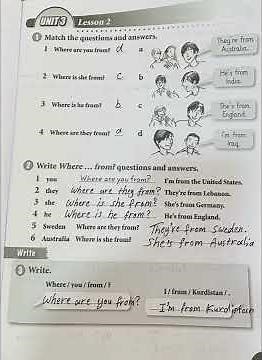 UNIT 3 Lesson 2
1 Match the questions and answers.
1 Where are you from? d a They're from Australia.
2 Where is she from? c b He's from India.
3 Where is he from? b c She's from England.
4 Where are they from? a d I'm from Iraq.
2 Write Where ... from? questions and answers.
1 you Where are you from? I'm from the United States.
2 they Where are they from? They're from Lebanon.
3 she Where is she from? She's from Germany.
4 he Where is he from? He's from England.
5 Sweden Where are they from? They're from Sweden.
6 Australia Where is she from? She's from Australia
Write
3 Write.
Where / you / from / ? I / from / Kurdistan / .
Where are you from? I'm from Kurdistan